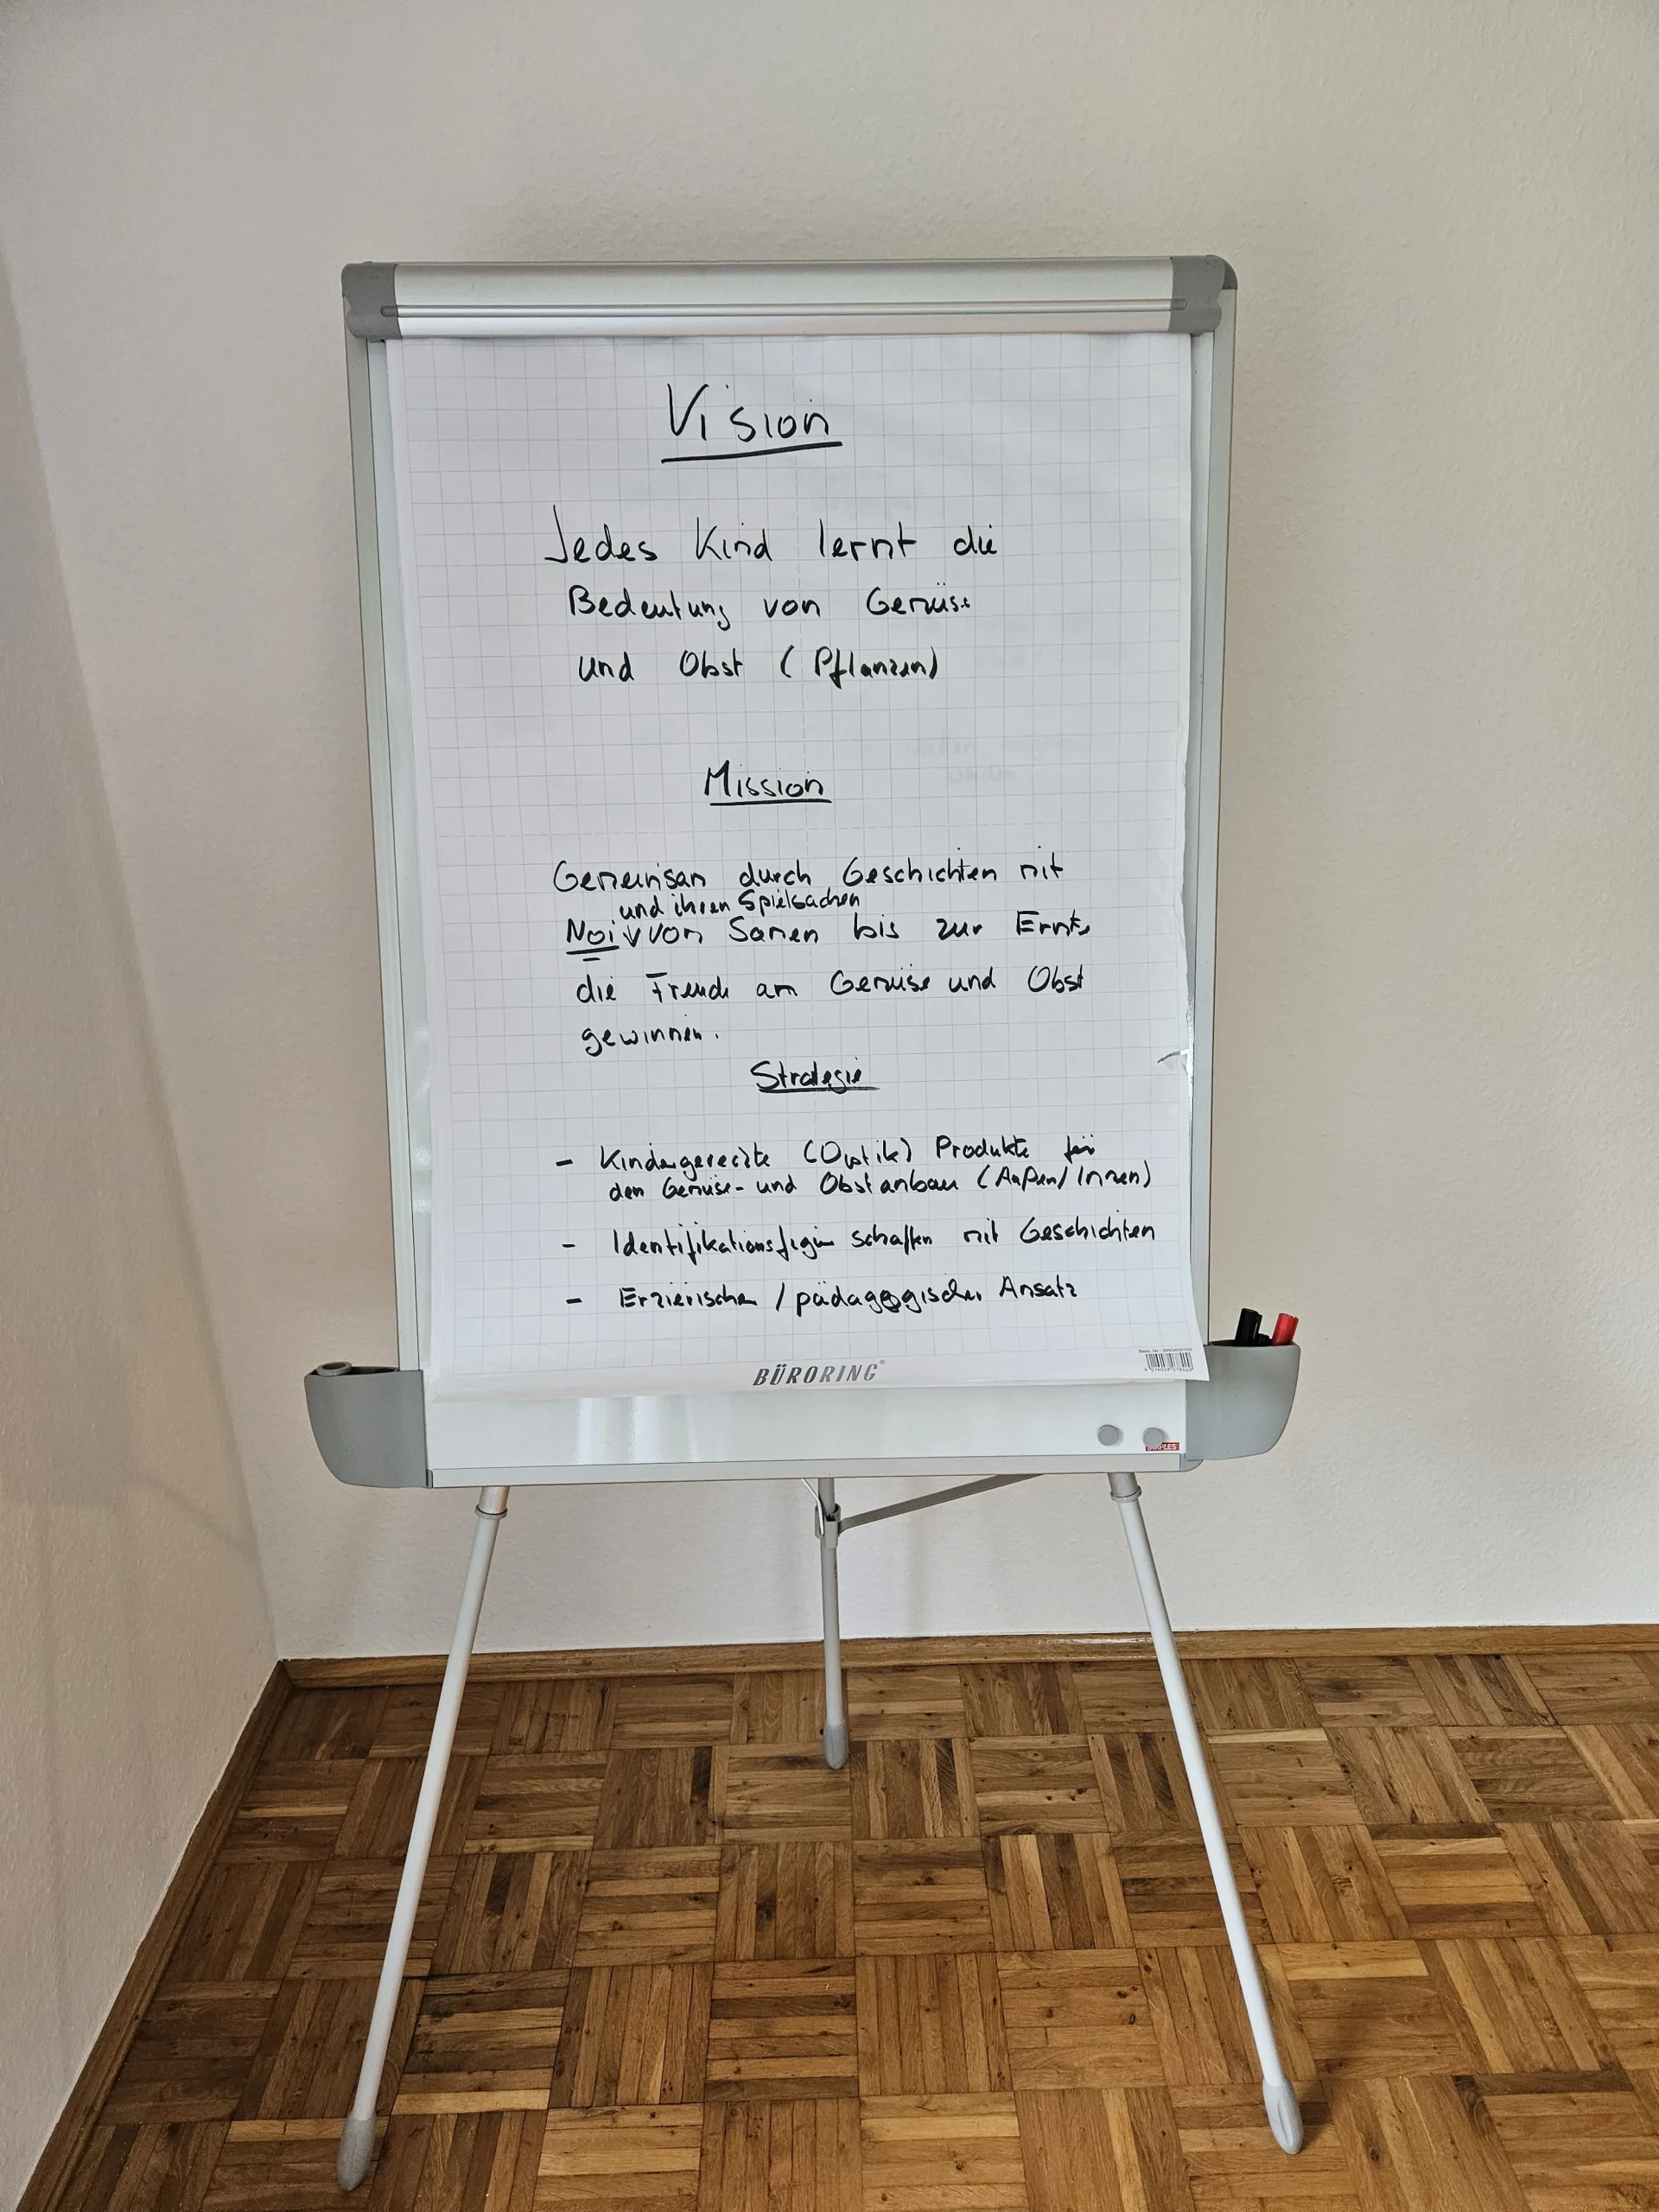 Vision
Jedes Kind lernt die
Bedeutung von Gemüse
und Obst (Pflanzen)
Mission
Gemeinsam durch Geschichten mit
und ihren Spielsachen
Noi von Samen bis zur Ernte
die Freude am Gemüse und Obst
gewinnen.
Strategie
- Kindergerechte (Optik) Produkte für
den Gemüse- und Obstanbau (Außen/Innen)
- Identifikationsfigur schaffen mit Geschichten
- Erzierischer / pädagogischer Ansatz
BÜRORING®